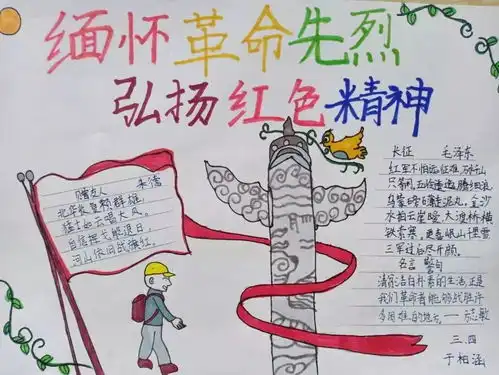 缅怀革命先烈
弘扬红色精神
赠友人 朱德
北华收复赖群雄
猛士如云唱大风。
自信挥戈能退日，
河山依旧战旗红。
长征 毛泽东
红军不怕远征难，万水千山
只等闲，五岭逶迤腾细浪
乌蒙磅礴走泥丸。金沙
水拍云崖暖，大渡桥横
铁索寒。更喜岷山千里雪
三军过后尽开颜。
名言 警句
清贫洁白朴素的生活，正是
我们革命者能够战胜许
多困难的地方。——方志敏
三.四
于柏涵